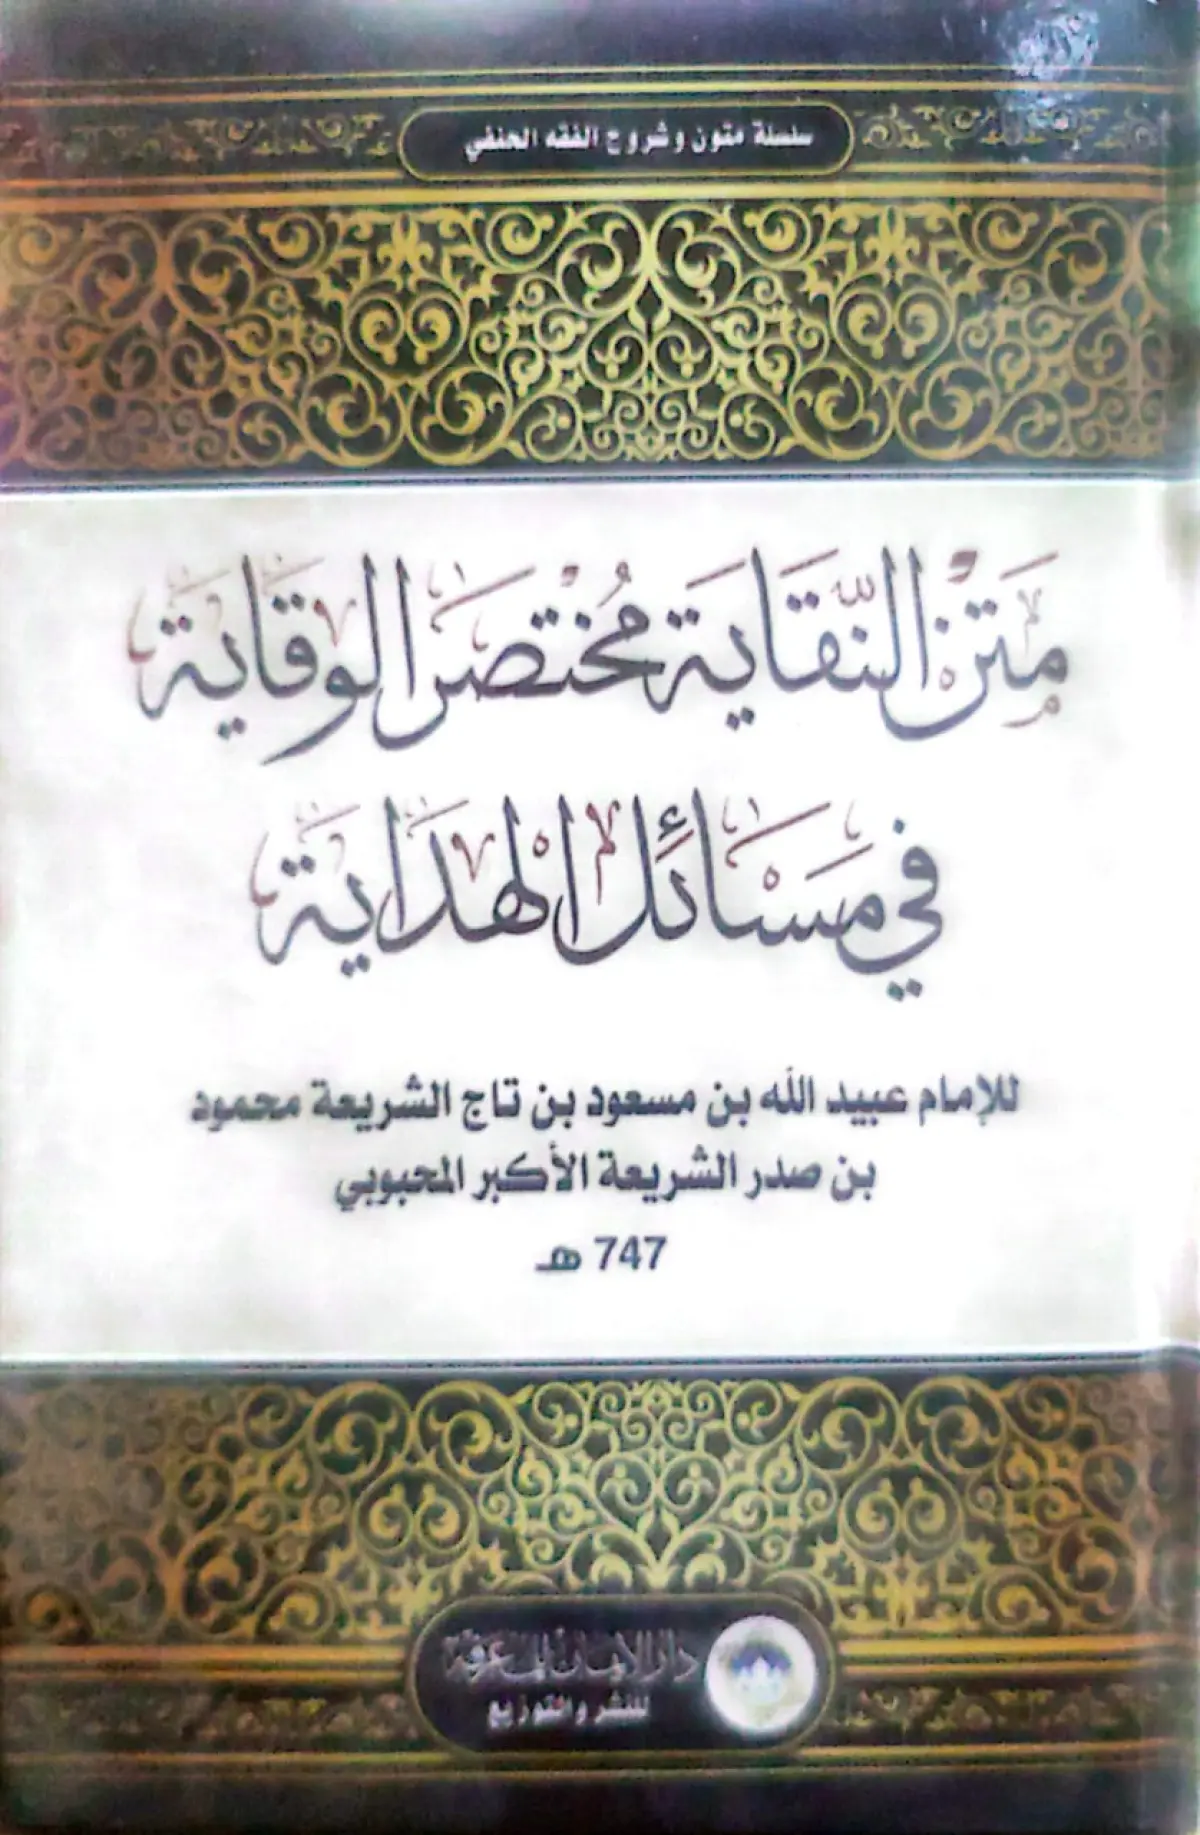 سلسلة متون وشروح الفقه الحنفي
مَتْنُ النِّقَايَة مُختصَر الوقَاية
في مسَائل الهدَاية
للإمام عبيد الله بن مسعود بن تاج الشريعة محمود
بن صدر الشريعة الأكبر المحبوبي
747 هـ
دار الإيمان والمعرفة
للنشر والتوزيع